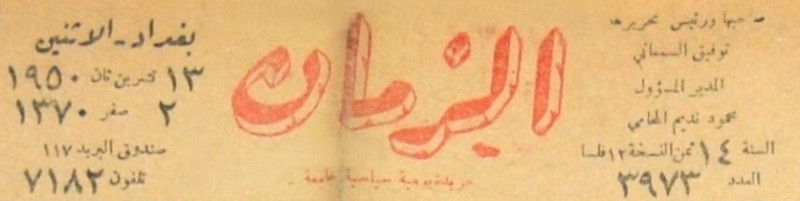 صاحبها ورئيس تحريرها
توفيق السمعاني
المدير المسؤول
محمود نديم المحامي
السنة ١٤ ثمن النسخة ١٢ فلسا
العدد ٣٩٧٣
الزمان
جريدة يومية سياسية جامعة
بغداد - الاثنين
١٣ تشرين ثان ١٩٥٠
٢ صفر ١٣٧٠
صندوق البريد ١١٧
تلفون ٧١٨٢